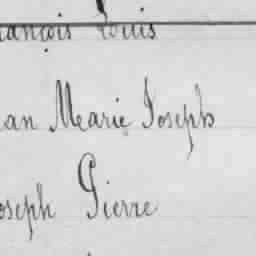 ançois Louis
an Marie Joseph
oseph Pierre